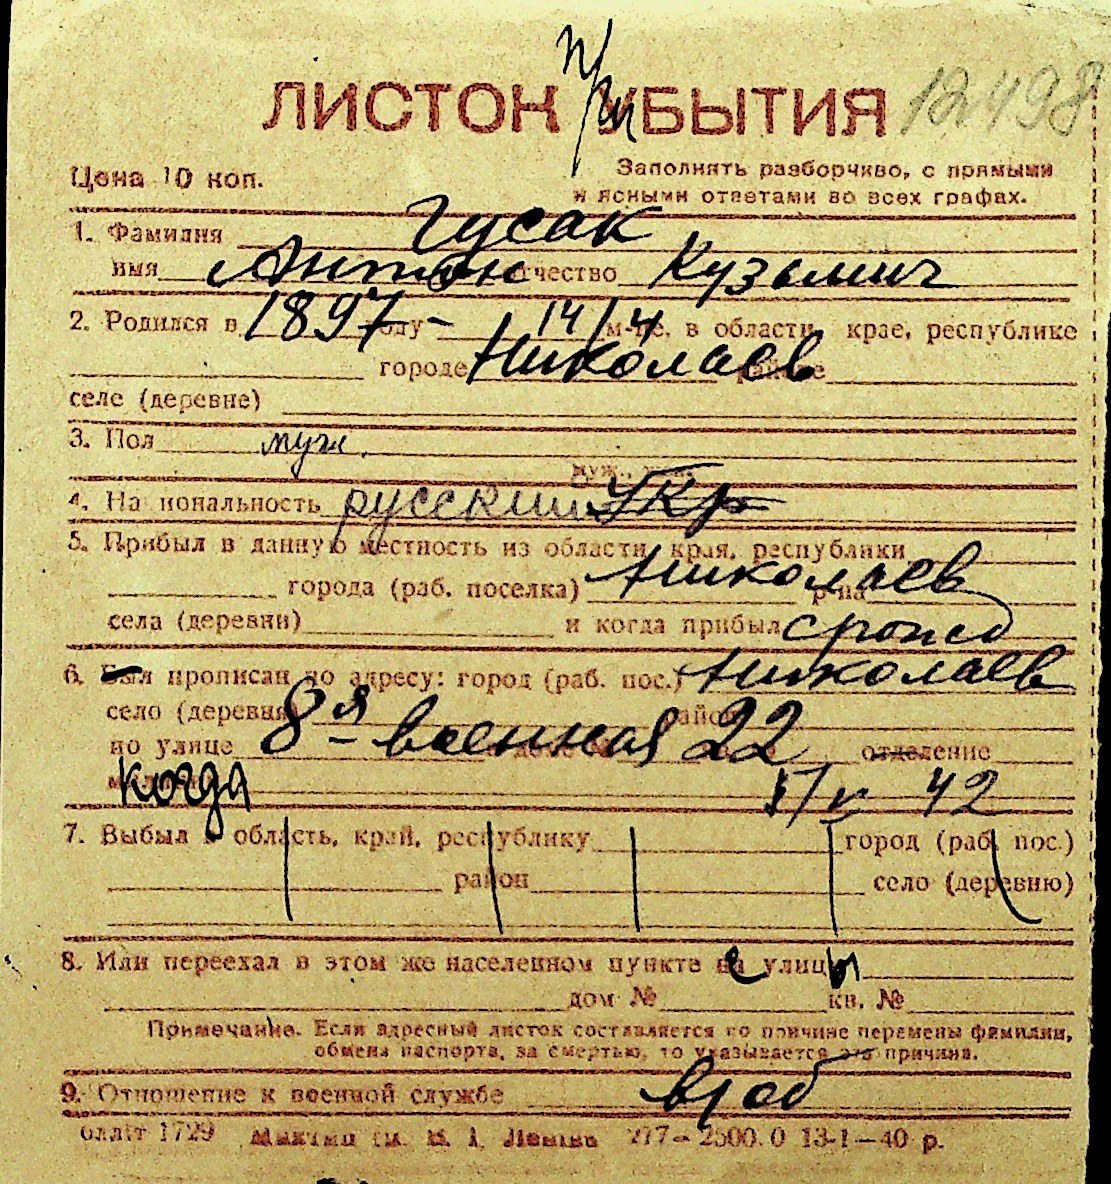 п/ш
ЛИСТОК УБЫТИЯ 12498
Цена 10 коп. Заполнять разборчиво, с прямыми
и ясными ответами во всех графах.
1. Фамилия Гусак
имя Антон отчество Кузьмич
2. Родился в 1897 году - 14/4 м-це, в области, крае, республике
городе Николаев районе
селе (деревне)
3. Пол муж.
муж.,
4. На иональность русский Укр
5. Прибыл в данную местность из области, края, республики
города (раб. поселка) Николаев р-на
села (деревни) и когда прибыл
6. Был прописан по адресу: город (раб. пос.) Николаев
село (деревня) район
по улице 8я - военная 22 отделение
когда 42
7. Выбыл в область, край, республику город (раб. пос.)
район село (деревню)
8. Или переехал в этом же населенном пункте с улицы
дом № кв. №
Примечание. Если адресный листок составляется по причине перемены фамилии,
обмена паспорта, за смертью, то указывается эта причина.
9. Отношение к военной службе в/об
облліт 1729 277-2500.0 13-1-40 р.